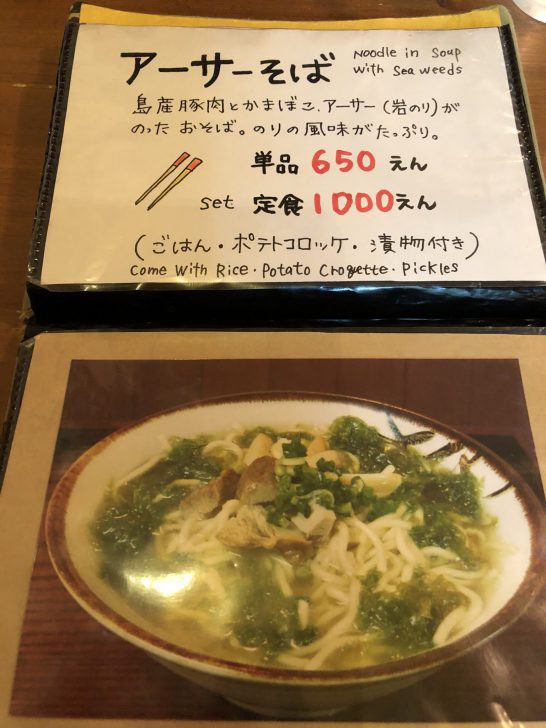 アーサーそば Noodle in Soup
with Sea weeds
島産豚肉とかまぼこ、アーサー(岩のり)が
のった おそば。のりの風味がたっぷり。
単品 650 えん
set 定食 1000えん
(ごはん・ポテトコロッケ・漬物付き)
Come with Rice・Potato Croqette・Pickles